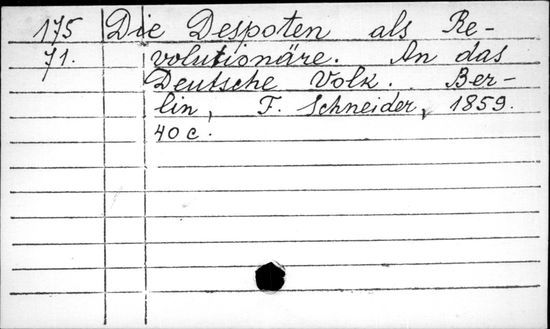 175 Die Despoten als Re-
71. volutionäre. An das
Deutsche Volk. Ber-
lin, F. Schneider, 1859.
40 c.